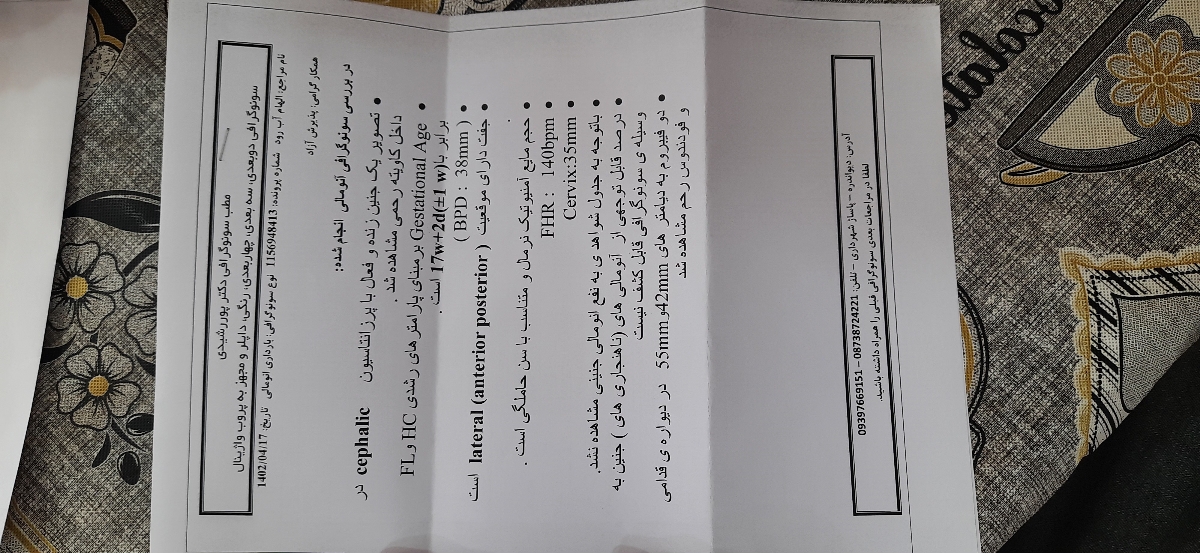 مطب سونوگرافی دکتر پوررشیدی
سونوگرافی دوبعدی، سه بعدی، چهاربعدی، رنگی، داپلر و مجهز به پروب واژینال
نام مراجع: الهام آب رود شماره پرونده: 1156948413 نوع سونوگرافی: بارداری انومالی تاریخ: 1402/04/17
همکار گرامی: پذیرش آزاد
در بررسی سونوگرافی آنومالی انجام شده:
• تصویر یک جنین زنده و فعال با پرزانتاسیون cephalic در
داخل کاویته رحمی مشاهده شد .
• Gestational Age بر مبنای پارامترهای رشدی HC و FL
برابر با 17w+2d(±1 w) است .
( BPD : 38mm )
• جفت دارای موقعیت lateral (anterior posterior ) است
• حجم مایع آمنیوتیک نرمال و متناسب با سن حاملگی است .
• FHR : 140bpm
• Cervix:35mm
• باتوجه به جدول شواهدی به نفع انومالی جنینی مشاهده نشد.
• درصد قابل توجهی از آنومالی های (ناهنجاری های ) جنین به
وسیله ی سونوگرافی قابل کشف نیست
• دو فیبروم به دیامتر های 42mm و 55mm در دیواره ی قدامی
و فوندوس رحم مشاهده شد
آدرس: دیواندره – پاساژ شهرداری – تلفن: 08738724221 – 09397669151
لطفا در مراجعات بعدی سونوگرافی قبلی را همراه داشته باشید.